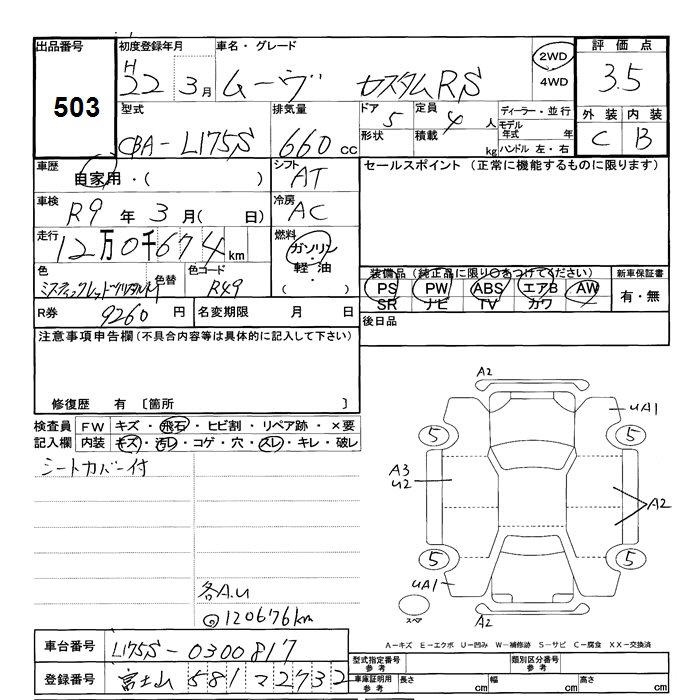 出品番号
503
初度登録年月
H
22 3月
車名・グレード
ムーヴ カスタムRS
2WD
4WD
評価点
3.5
外装 内装
C B
型式
CBA-L175S
排気量
660 cc
ドア
5
形状
定員
4人
積載
kg
ディーラー・並行
モデル
年式 年
ハンドル 左・右
車歴
自家用・( )
シフト
AT
セールスポイント (正常に機能するものに限ります)
車検
R9年 3月( 日)
冷房
AC
走行
12万0千674km
燃料
ガソリン
・
軽油
・
( )
色
色替
色コード
R49
装備品 (純正品に限り○をつけてください)
PS PW ABS エアB AW
SR ナビ TV カワ
新車保証書
有・無
R券 9260円
名変期限 月 日
後日品
注意事項申告欄(不具合内容等は具体的に記入して下さい)
修復歴 有 〔箇所 〕
検査員
記入欄
FW キズ・飛石・ヒビ割・リペア跡・×要
内装 キズ・汚レ・コゲ・穴・スレ・キレ・破レ
シートカバー付
各A.U
◎120676km
A2
UA1
5
5
A3
U2
A2
5
5
UA1
スペア
A2
A-キズ E-エクボ U-凹み W-補修跡 S-サビ C-腐食 XX-交換済
車台番号 L175S-0300817
登録番号 富士山 581 マ 2732
型式指定番号
参考
類別区分番号
参考
車庫証明用
参考
長さ cm
幅 cm
高さ cm